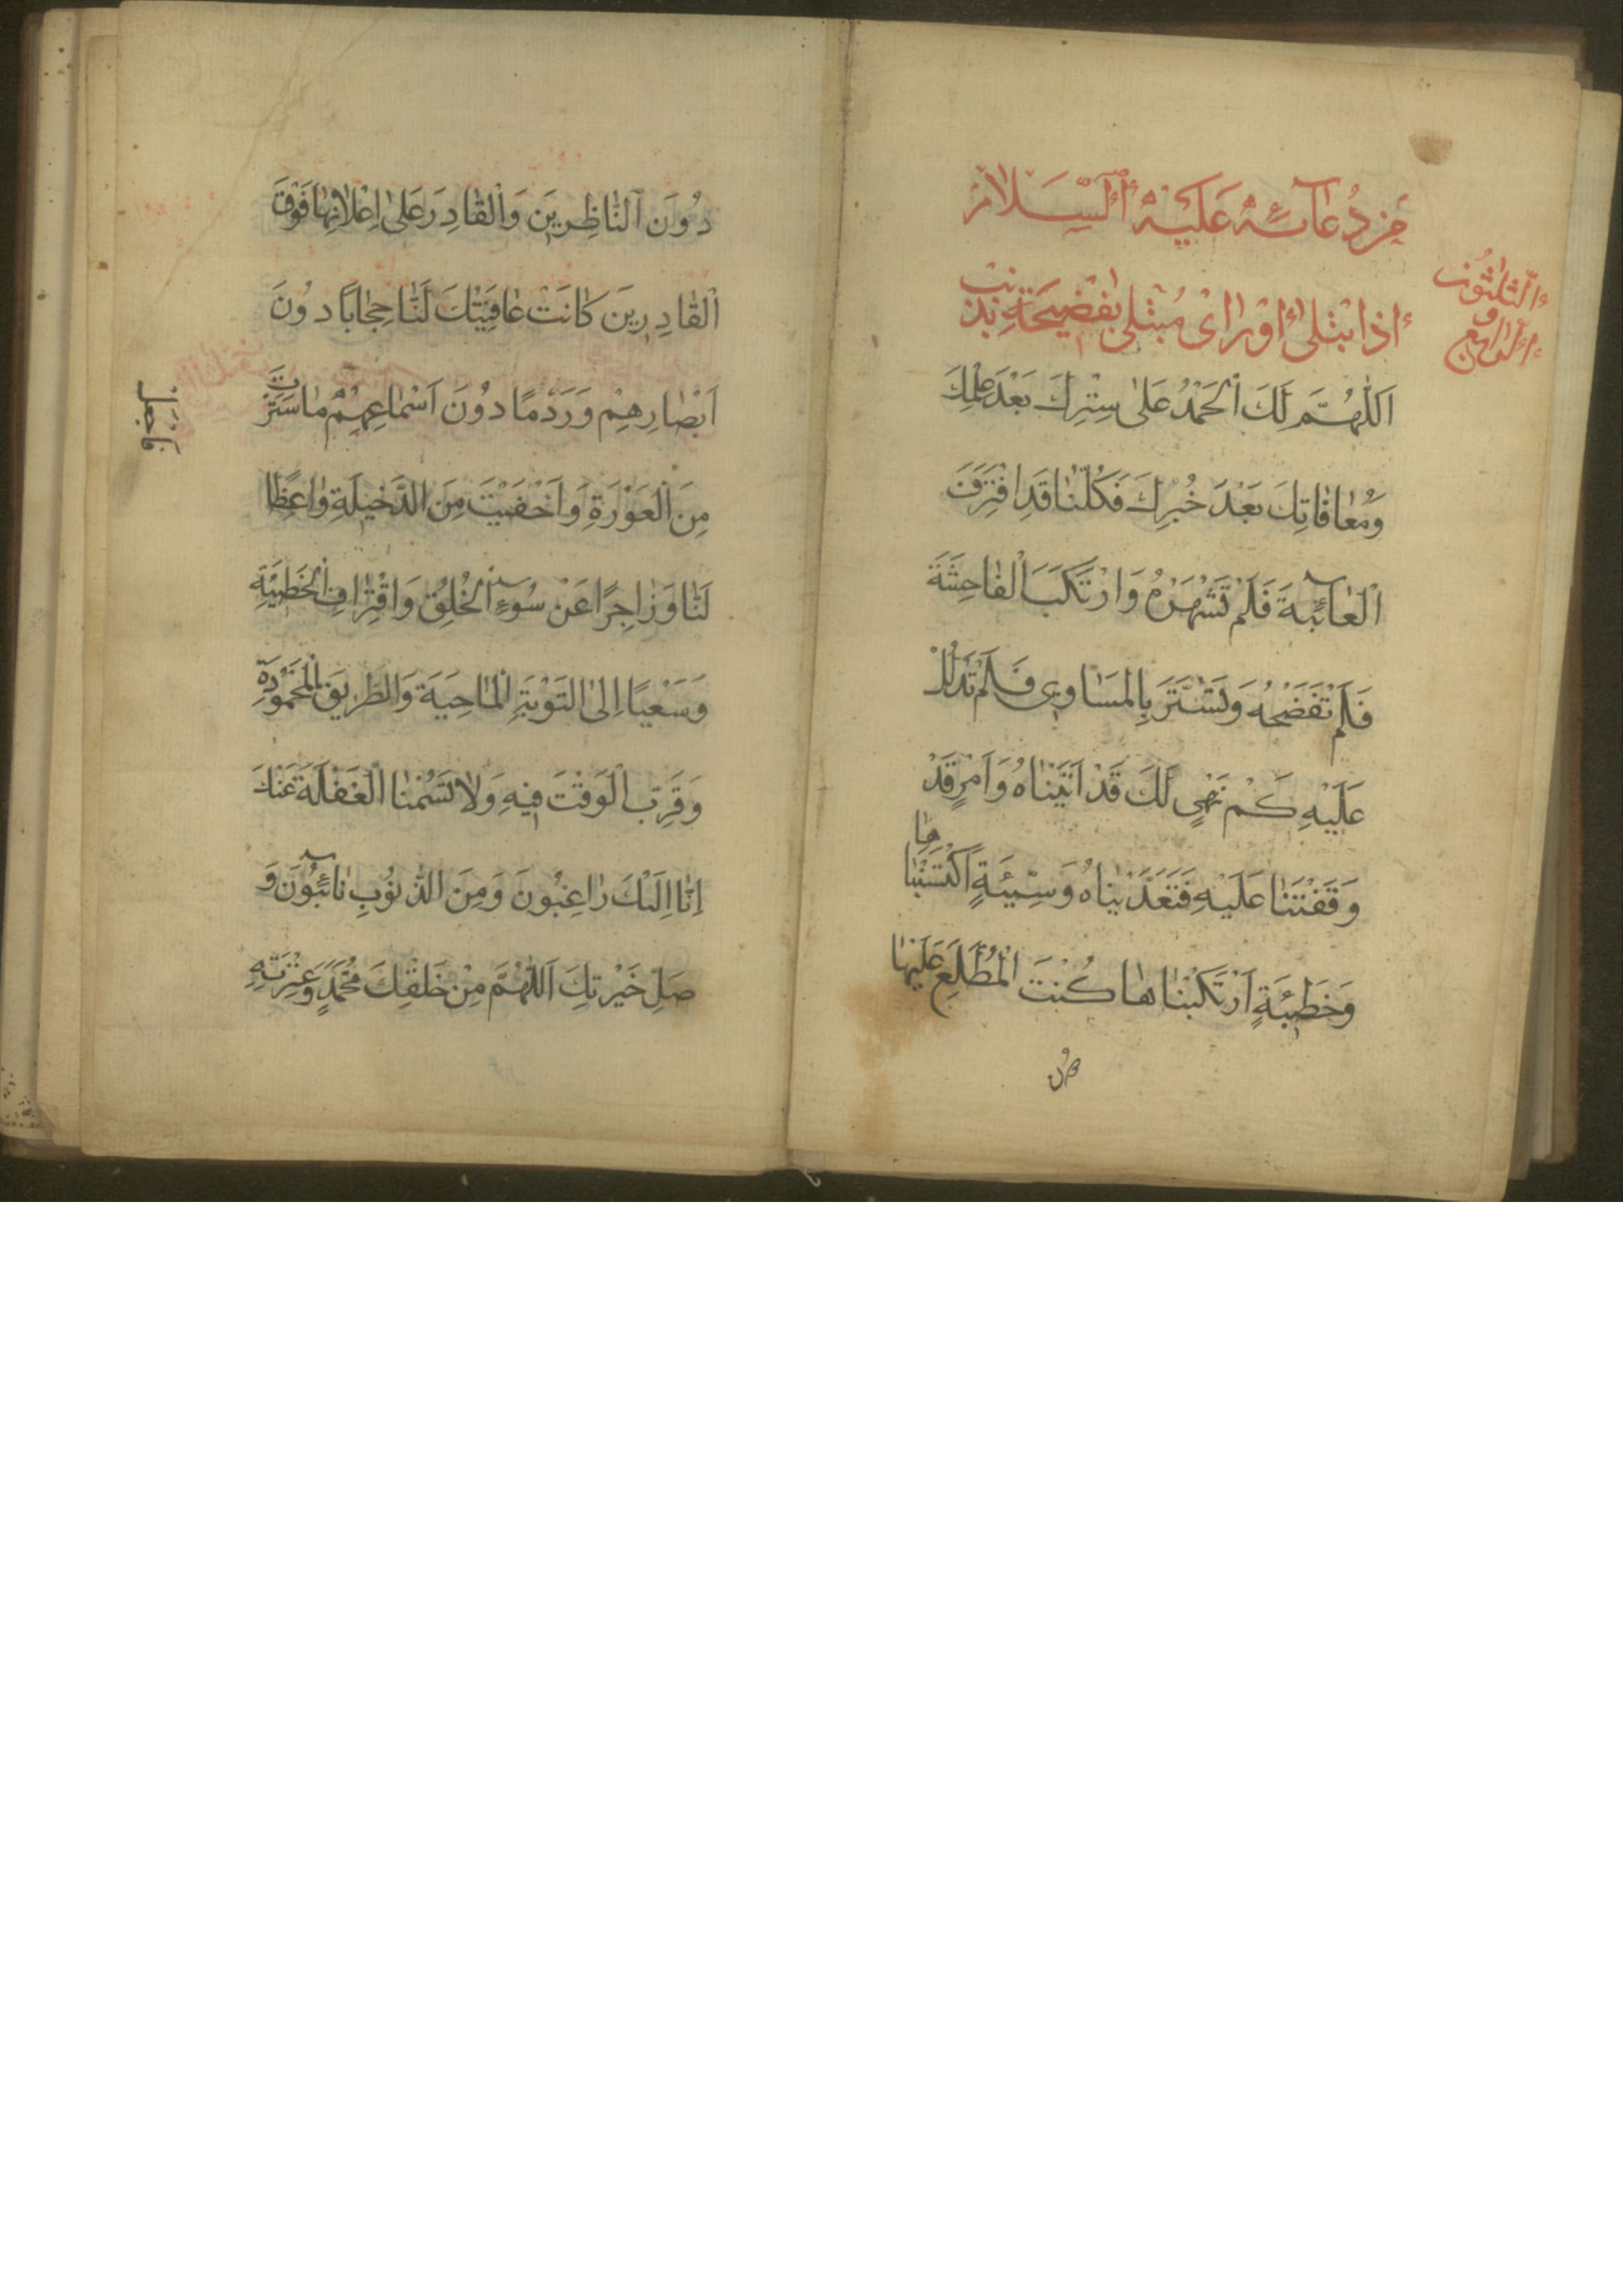 من دُعَآئِهِ عَلَيْهِ السَّلَامُ
الثلثون
و
الرابع
اذا ابتلى اَوْ رَاىٰ مُبْتَلىً بفَضيحَةٍ بذنب
اَللّٰهُمَّ لَكَ اَلْحَمْدُ عَلىٰ سِتْرِكَ بَعْدَ عِلْمِكَ
وَمُعَافَاتِكَ بَعْدَ خُبْرِكَ فَكُلُّنَا قَدِ اقْتَرَفَ
الْعَآئِبَةَ فَلَمْ تَشْهَرْهُ وَارْتَكَبَ الْفَاحِشَةَ
فَلَمْ تَفْضَحْهُ وَتَسَتَّرَ بِالْمَسَاوِي فَلَمْ تَدْلُلْ
عَلَيْهِ كَمْ نَهْيٍ لَكَ قَدْ اَتَيْنَاهُ وَاَمْرٍ قَدْ
وَقَفْتَنَا عَلَيْهِ فَتَعَدَّيْنَاهُ وَسَيِّئَةٍ اكْتَسَبْنَاها
وَخَطيئَةٍ اَرْتَكَبْنَاهَا كُنْتَ الْمُطَّلِعَ عَلَيْهَا
دُونَ النَّاظِرِينَ وَالْقَادِرَ عَلىٰ اِعْلَانِهَا فَوْقَ
اَلْقَادِرِينَ كَانَتْ عَافِيَتُكَ لَنَا حِجَابًا دُونَ
اَبْصَارِهِمْ وَرَدْمًا دُونَ اَسْمَاعِهِمْ مَا سَتَرْتَ
فاجعل
مِنَ الْعَوْرَةِ وَاَخْفَيْتَ مِنَ الدَّخيلَةِ وَاعِظًا
لَنَا وَزَاجِرًا عَنْ سُوءِ الْخُلُقِ وَاقْتِرَافِ الْخَطيئَةِ
وَسَعْيًا اِلىَ التَّوْبَةِ الْمَاحِيَةِ وَالطَّرِيقِ الْمَحْمُودَةِ
وَقَرِّبِ الْوَقْتَ فيهِ وَلَا تَسُمْنَا الْغَفْلَةَ عَنْكَ
اِنَّا اِلَيْكَ رَاغِبُونَ وَمِنَ الذُّنُوبِ تَآئِبُونَ وَ
صَلِّ خَيْرَتِكَ اَللّٰهُمَّ مِنْ خَلْقِكَ مُحَمَّدٍ وَعِتْرَتِهِ